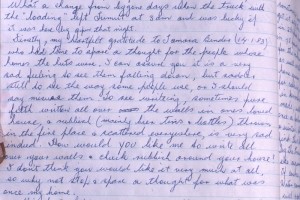 What a change from diggers days when the truck with
the "loading" left Summit at 5 am and was lucky if
it was
gratitude to Tamara Bunder
who has time to spare a thought for the people whose
homes the huts were, I can assure you it is a very
sad feeling to see them falling down, but sadder
still to see the way some people use, or I should
say misuse them, to see
written all over the walls in ones loved
house, &, rubbish (mainly beer tins & bottles) thrown
in the fire place & scattered everywhere, is very sad
indeed. How would you like me to write all
over your walls & chuck rubbish around your house?
I don't think you would like it very much at all,
so why not stop & spare a thought for what was
once my home.